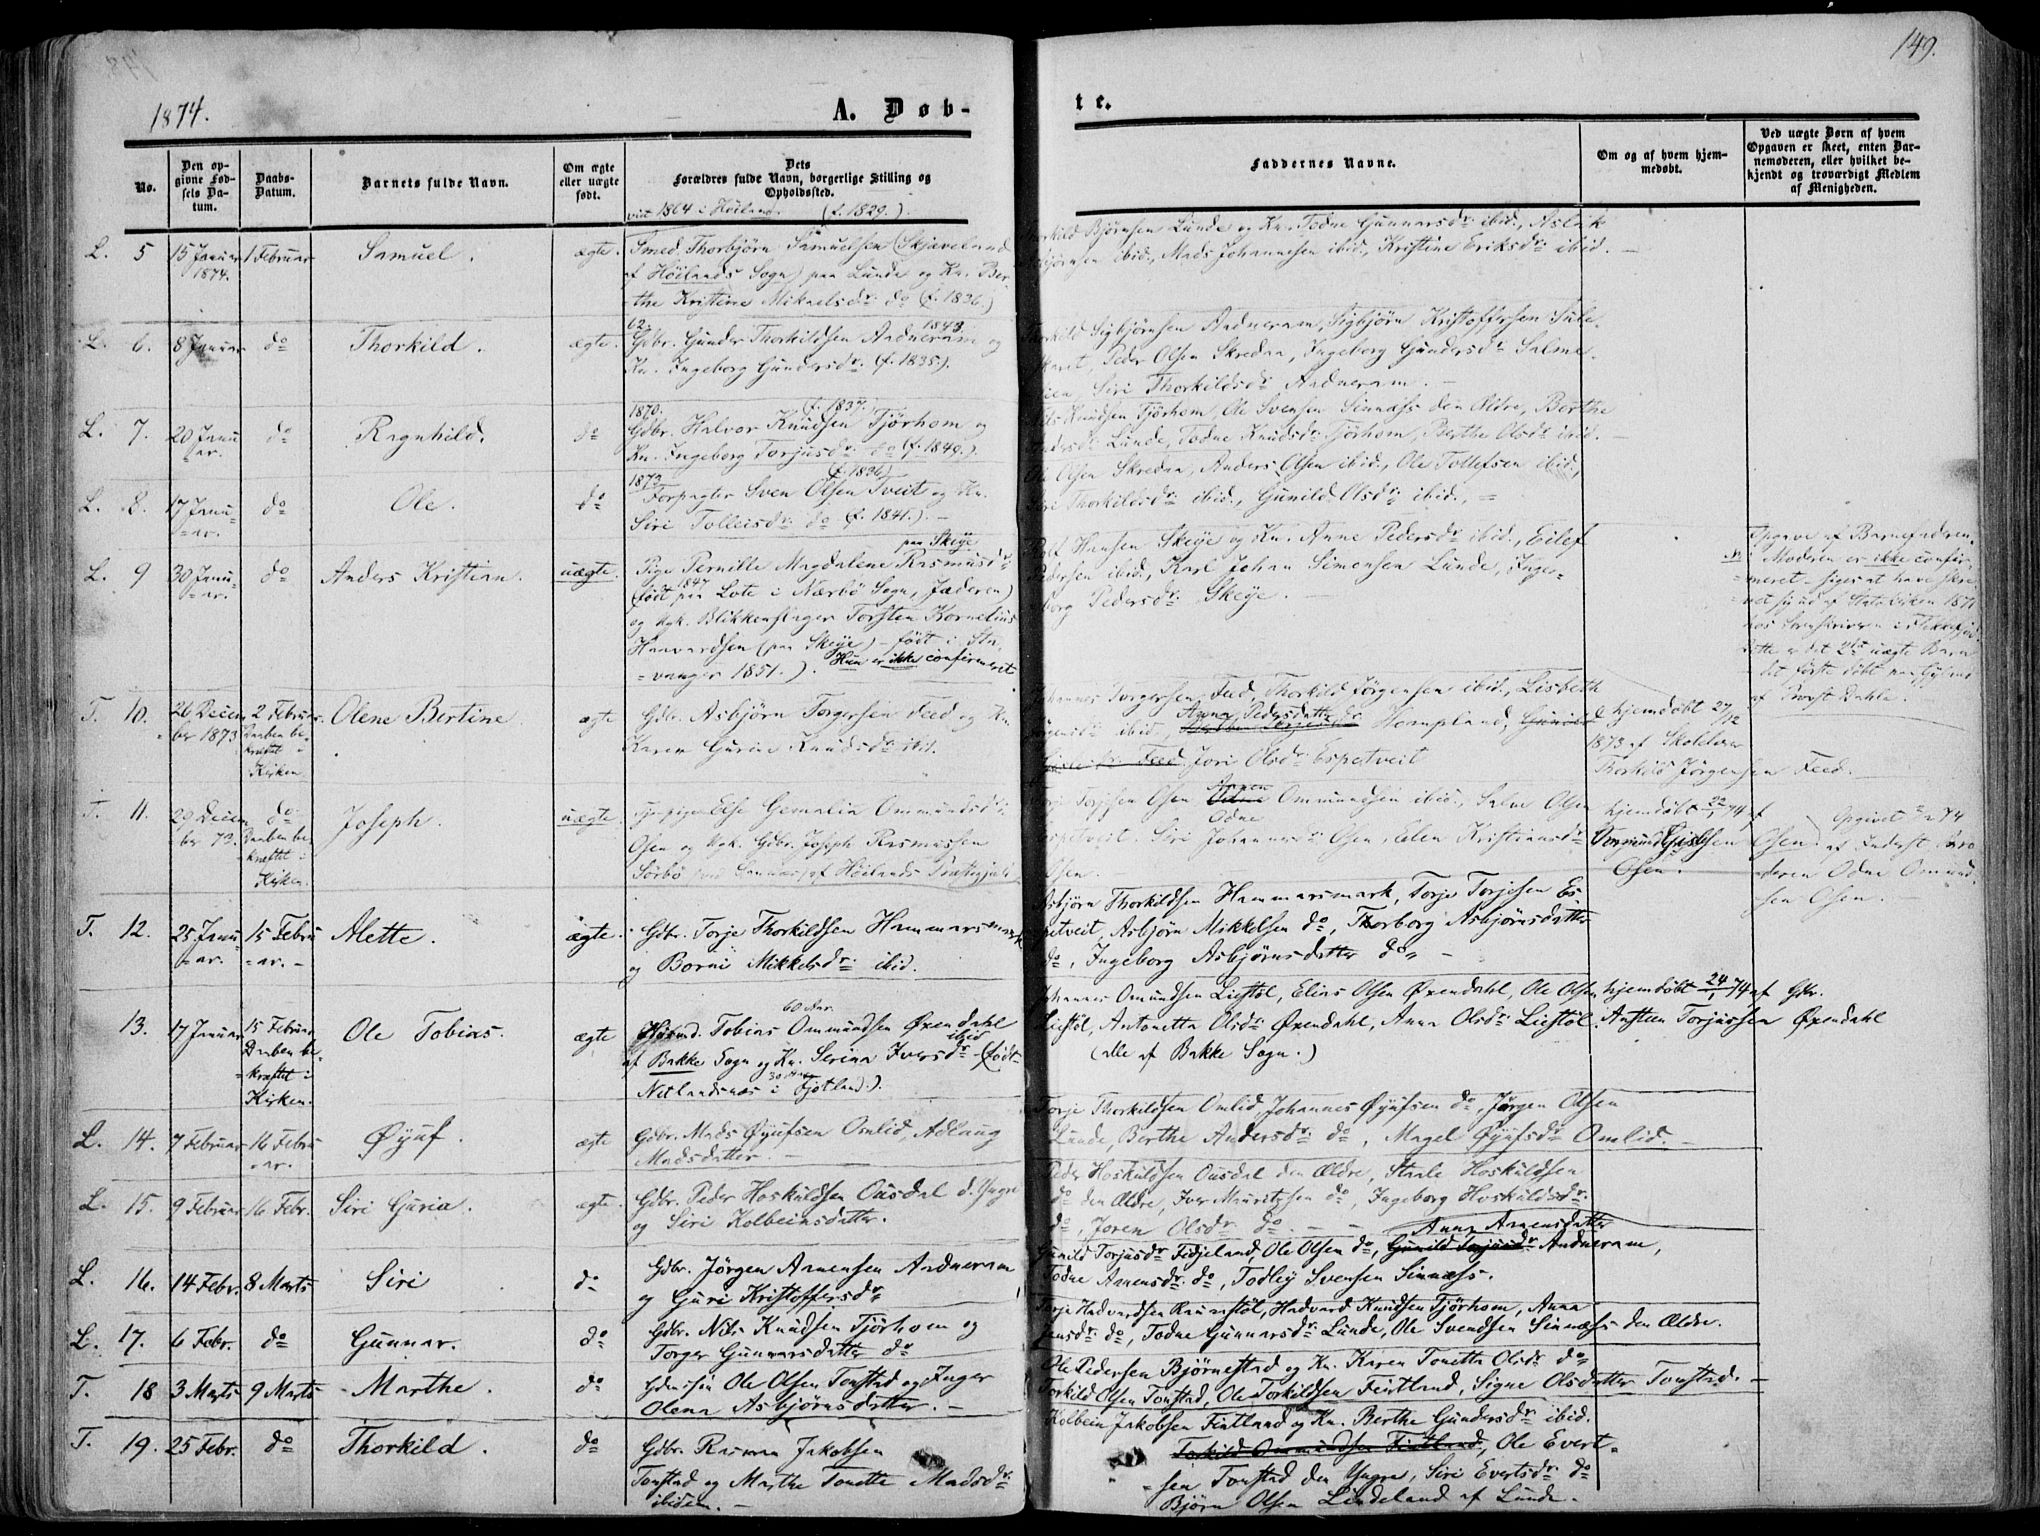 149.
1874.
A. Døb-
te.
No.
Den op-
givne Fød-
sels Da-
tum.
Daabs-
Datum.
Barnets fulde Navn.
Om ægte
eller uægte
født.
Dets
Forældres fulde Navn, borgerlige Stilling og
Opholdssted.
Faddernes Navne.
Om og af hvem hjem-
medøbt.
Ved uægte Børn af hvem
Opgaven er skeet, enten Bar-
nemoderen, eller hvilket be-
kjendt og troværdigt Medlem
af Menigheden.
viet 1864 i Höiland. (f. 1829.)
L. 5 15 Januar 1874. 1 Februar Samuel. ægte.
Smed Thorbjörn Samuelsen (Skjæveland
af Höilands Sogn) paa Lunde og Kn. Ber-
the Kristine Mikaelsdr. do (f. 1836.)
Björnsen Lunde og Kn. Todne Gunnarsdr. ibid., Aslak
ibid., Mads Johannesen ibid., Kristine Eriksdr. ibid. —
L. 6. 8 Januar do Thorkild. ægte.
62. 1843.
Gdbr. Gunder Thorkildsen Andneram og
Kn. Ingeborg Gundersdr. (f. 1835).
Sigbjörnsen Andneram, Sigbjörn Kristoffersen
Peder Olsen Skredaa, Ingeborg Gundersdr. Salme-
Siri Thorkildsdr. Andneram. —
L. 7. 20 Janu-ar. do Ragnhild. do
1870. (f. 1837.)
Gdbr. Halvor Knudsen Tjörhom og
Kn. Ingeborg Torjusdr. do (f. 1849.).
Knudsen Tjörhom, Ole Svensen Sinnæss den Ældre, Berthe
Andersdr. Lunde, Todne Knudsdr. Tjörhom, Berthe Olsdr. ibid. —
L. 8. 17 Janu-ar. do Ole. do
1873 (f. 1836)
Forpagter Sven Olsen Tveit og Kn.
Siri Tolleisdr. do (f. 1841.). —
Ole Olsen Skredaa, Anders Olsen ibid., Ole Tollefsen ibid.,
Siri Thorkildsdr. ibid., Gunild Olsdr. ibid., —
L. 9 30 Janu-ar. do Anders Kristian. uægte.
paa Skeije
Pige Pernille Magdalene Rasmusdr.
(født 1847 paa Lote i Nærbö Sogn, Jæderen)
og Ugk. Blikkenslager Torsten Kornelius
Haavardsen (paa Skeije) – født i Sta-
vanger 1851.). Hun er ikke confirmeret
Hansen Skeije og Kn. Anne Pedersdr. ibid., Eilef
Pedersen ibid., Karl Johan Simonsen Lunde, Inge-
borg Pedersdr. Skeije. —
Opgave af Barnefaderen.
Moderen er ikke confir-
meret – siges at have skre-
vet sig ud af Statskirken 1871
hos Sorenskriveren i Flekkefjord.
Dette er det 2det uægte Barn
det første døbt paa Gyland
af Provst Dahle.
T. 10. 26 Decem-ber 1873 2 Februar. Daaben be-kræftet i Kirken Olene Bertine ægte
Gdbr. Asbjörn Torgersen Feed og Kn.
Karen Gurine Knudsdr. ibid.
Johannes Torgersen Feed, Thorkild Jörgensen ibid., Lisbeth
Jörgensdr. ibid., Anna Pedersdatter Hompland, Gunild
Feed Jori Olsdr. Espetveit
hjemdöbt 27/12
1873 af Skolelærer
Thorkild Jörgensen Feed.
T. 11. 29 Decem-ber 73. do Daaben be-kræftet i Kirken. Joseph. uægte.
Tjpige Else Gemalia Ommundsdr.
Osen og Ugk. Gdbr. Joseph Rasmussen
Sörbö af Höilands Præstegjeld
Torjesen Osen Odne Ommundsen ibid., Salve Olsen
Espetveit, Siri Johannesdr. Osen, Elen Kristiansdr.
Osen.
hjemdöbt 22/1 74 af
Ommund Gjislesen Osen
Osen.
Opgivet 2/2 74
af Inderst Bro-
deren Odne Ommund-
sen Osen. —
T. 12. 25 Janu-ar. 15 Febru-ar. – Alette. ægte.
Gdbr. Torje Thorkildsen Hammarsmark
og Borni Mikkelsdr. ibid.
Asbjörn Thorkildsen Hammarsmark, Torje Torjesen Es-
petveit, Asbjörn Mikkelsen do, Thorborg Asbjörnsdatter
do, Ingeborg Asbjörnsdatter do. —
13. 17 Januar 15 Februar. Daaben be-kræftet i Kirken. Ole Tobias. ægte
60 Aar.
Husmd. Tobias Ommundsen Øxendahl
af Bakke Sogn og Kn. Serina Iversdr. ibid – (født
Netlandsnes i Fjotland.).
Johannes Omundsen Liestöl, Elias Olsen Øxendahl, Ole Olsen
Liestöl, Antonetta Olsdr. Øxendahl, Anna Olsdr. Liestöl.
(alle af Bakke Sogn.)
hjemdöbt 24/1 74 af Gbr.
Austeen Torjussen Øxendahl
L. 14. 7 Februar 16 Febru-ar. Øyuf. ægte
Gdbr. Mads Øyufsen Omlid, Adlaug
Madsdatter. —
Torje Thorkildsen Omlid, Johannes Øyufsen do, Jörgen Olsen
Lunde, Berthe Andersdr. do, Magel Øyufsdr. Omlid. —
L. 15. 9 Februar 16 Febr. Siri Guria. ægte.
Gdbr. Peder Hoskuldsen Ousdal d. Yngre
og Siri Kolbeinsdatter.
Peder Hoskuldsen Ousdal den Ældre, Staale Hoskuldsen
do den Ældre, Iver Mauritzsen do, Ingeborg Hoskuldsdr.
do, Joren Olsdr. do. — —
L. 16. 14 Febr. 8 Marts Siri do
Gdbr. Jörgen Arnensen Andneram
og Guri Kristoffersdr.
Anna Arnensdatter
Gunild Torjusdr. Fidjeland, Ole Olsen do, Gunild Torjusdr. Andneram,
Todne Arnensdr. do, Todley Svensen Sinnæss.
L. 17. 6 Febr. do Gunnar. do
Gdbr. Nils Knudsen Tjörhom og
Torger Gunnarsdatter do
Torje Hadvardsen Raunestöl, Hadvard Knudsen Tjörhom, Anna
do, Todne Gunnarsdr. Lunde, Ole Svendsen Sinnæss den Ældre.
T. 18 3 Marts 9 Marts Marthe. do
Gdmssön Ole Olsen Tonstad og Inger
Olena Asbjörnsdatter. —
Ole Pedersen Björnestad og Kn. Karen Tonetta Olsdr. do,
Torkild Olsen Tonstad, Ole Torkildsen Fintland, Signe Olsdatter Tonstad. —
T. 19. 25 Febr. do Thorkild. do
Gdbr. Rasmus Jakobsen
Tonstad og Marthe Tonette Madsdr.
ibidem. —
Kolbein Jakobsen Fintland og Kn. Berthe Gundersdr. ibid.
Torkild Ommundsen Fintland, Ole Evert-
sen Tonstad den Yngre, Siri Evertsdr. do
Björn Olsen Lindeland af Lunde.